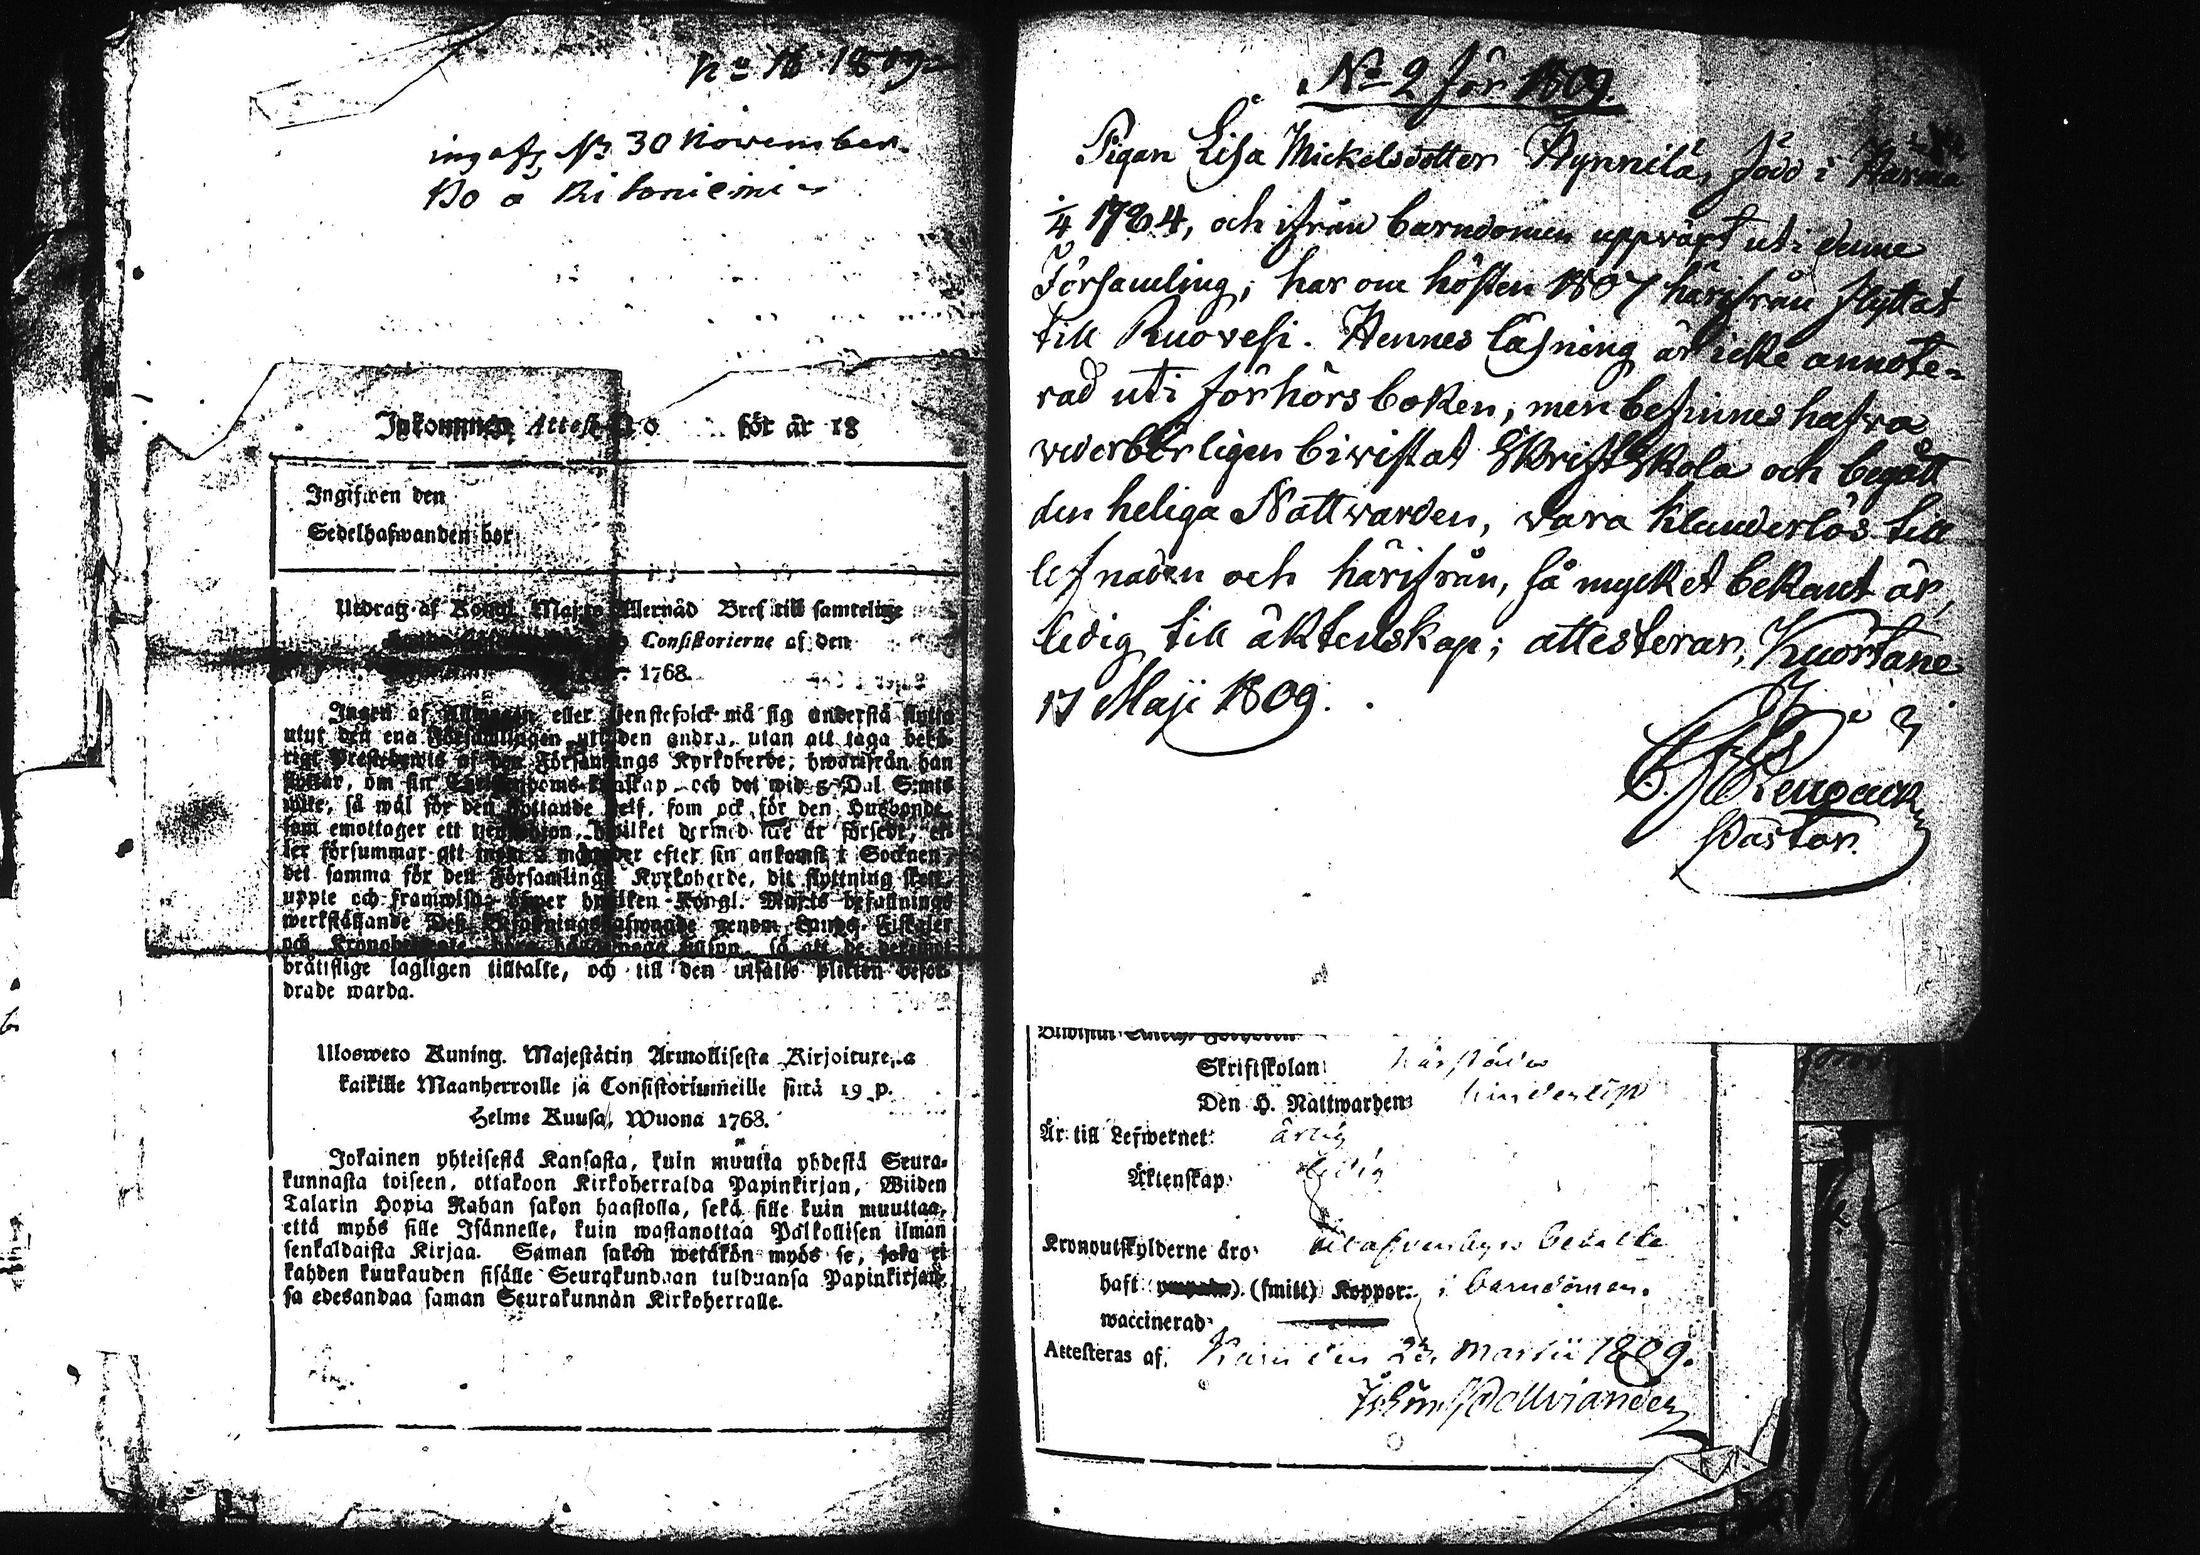 No 16 1809
30 November
Bo å Ritoniemi
Inkommen Attest No för år 18
Ingifwen den
Sedelhafwanden bor
Utdrag af Kongl. Maj:ts Allernåd Bref till samtelige
Consistorierne af den
1768.
Ingen af Allmogen eller tjenstefolck må sig understå flytta
utur den ena Församlingen uti den andra, utan att taga behö-
rigt Prestebewis af den Församlings Kyrkoherde, hwarifrån han
flyttar, om sin Christendoms-kunskap och det wid 5 Dal. S:mts
wite, så wäl för den flyttande self, som ock för den Husbonde,
som emottager ett tjenstehjon, hwilket dermed icke är försedt, el-
ler försummar att inom 2 månader efter sin ankomst i Socknen,
det samma för den Församlings Kyrkoherde, dit flyttning skett,
uppte och framwisa; öfwer hwilken Kongl. Maj:ts befallnings
werkställande Dess Befallningshafwande genom Lands-Fiskaler
och Kronobetjente, böra hafwa noga inseen, så att de
brätslige lagligen tilltalte, och till den utsatte plikten befor-
drade warda.
Ulosweto Kuning. Majestätin Armollisesta Kirjoituxesta
kaikille Maanherroille ja Consistoriumeille siitä 19 p.
Helme Kuusa, Wuona 1768.
Jokainen yhteisestä Kansasta, kuin muutta yhdestä Seura-
kunnasta toiseen, ottakoon Kirkoherralda Papinkirjan, Wiiden
Talarin Hopia Rahan sakon haastolla, sekä sille kuin muuttaa,
että myös sille Isännelle, kuin wastanottaa Palkollisen ilman
senkaldaista Kirjaa. Saman sakon wetäkön myös se, joka ei
kahden kuukauden sisälle Seurakundaan tulduansa Papinkirjaan-
sa edesandaa saman Seurakunnan Kirkoherralle.
No 2 för 1809.
Pigan Lisa Mickelsdotter Hynnilä, född i Härmä
1/4 1784, och ifrån barndomen uppväxt uti denne
Församling, har om hösten 1807 härifrån flyttat
till Ruovesi. Hennes läsning är icke annote-
rad uti förhörsboken, men befinnes hafva
vederbörligen bivistat Skriftskola och begått
den heliga Nattvarden, vara klanderlös till
lefnaden och härifrån, så mycket bekant är,
ledig till äktenskap; attesterar, Kuortane
17 Maji 1809.
Pastor.
Skriftskolan:
Den H. Nattwarden: hinderlöst
Är till Lefwernet: ärlig
Äktenskap: ledig
Kronoutskylderne äro: betalte
haft (smitt) Koppor: i barndomen.
waccinerad:
Attesteras af. den 23. Martii 1809.